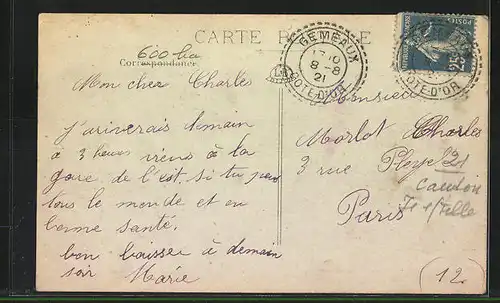 CARTE POSTALE
600 ha
Correspondance
GEMEAUX
8-8
21
COTE-D'OR
POSTES
25
COTE-D'OR
LH
Mon cher Charles
J'ariverais demain
a 3 heures viens à la
gare de l'est, si tu peux
tous le monde et en
bonne santé.
bon baisser à demain
soir Marie
Monsieur
Morlot Charles
3 rue
Paris
Canton
Is s/Tille
(12)